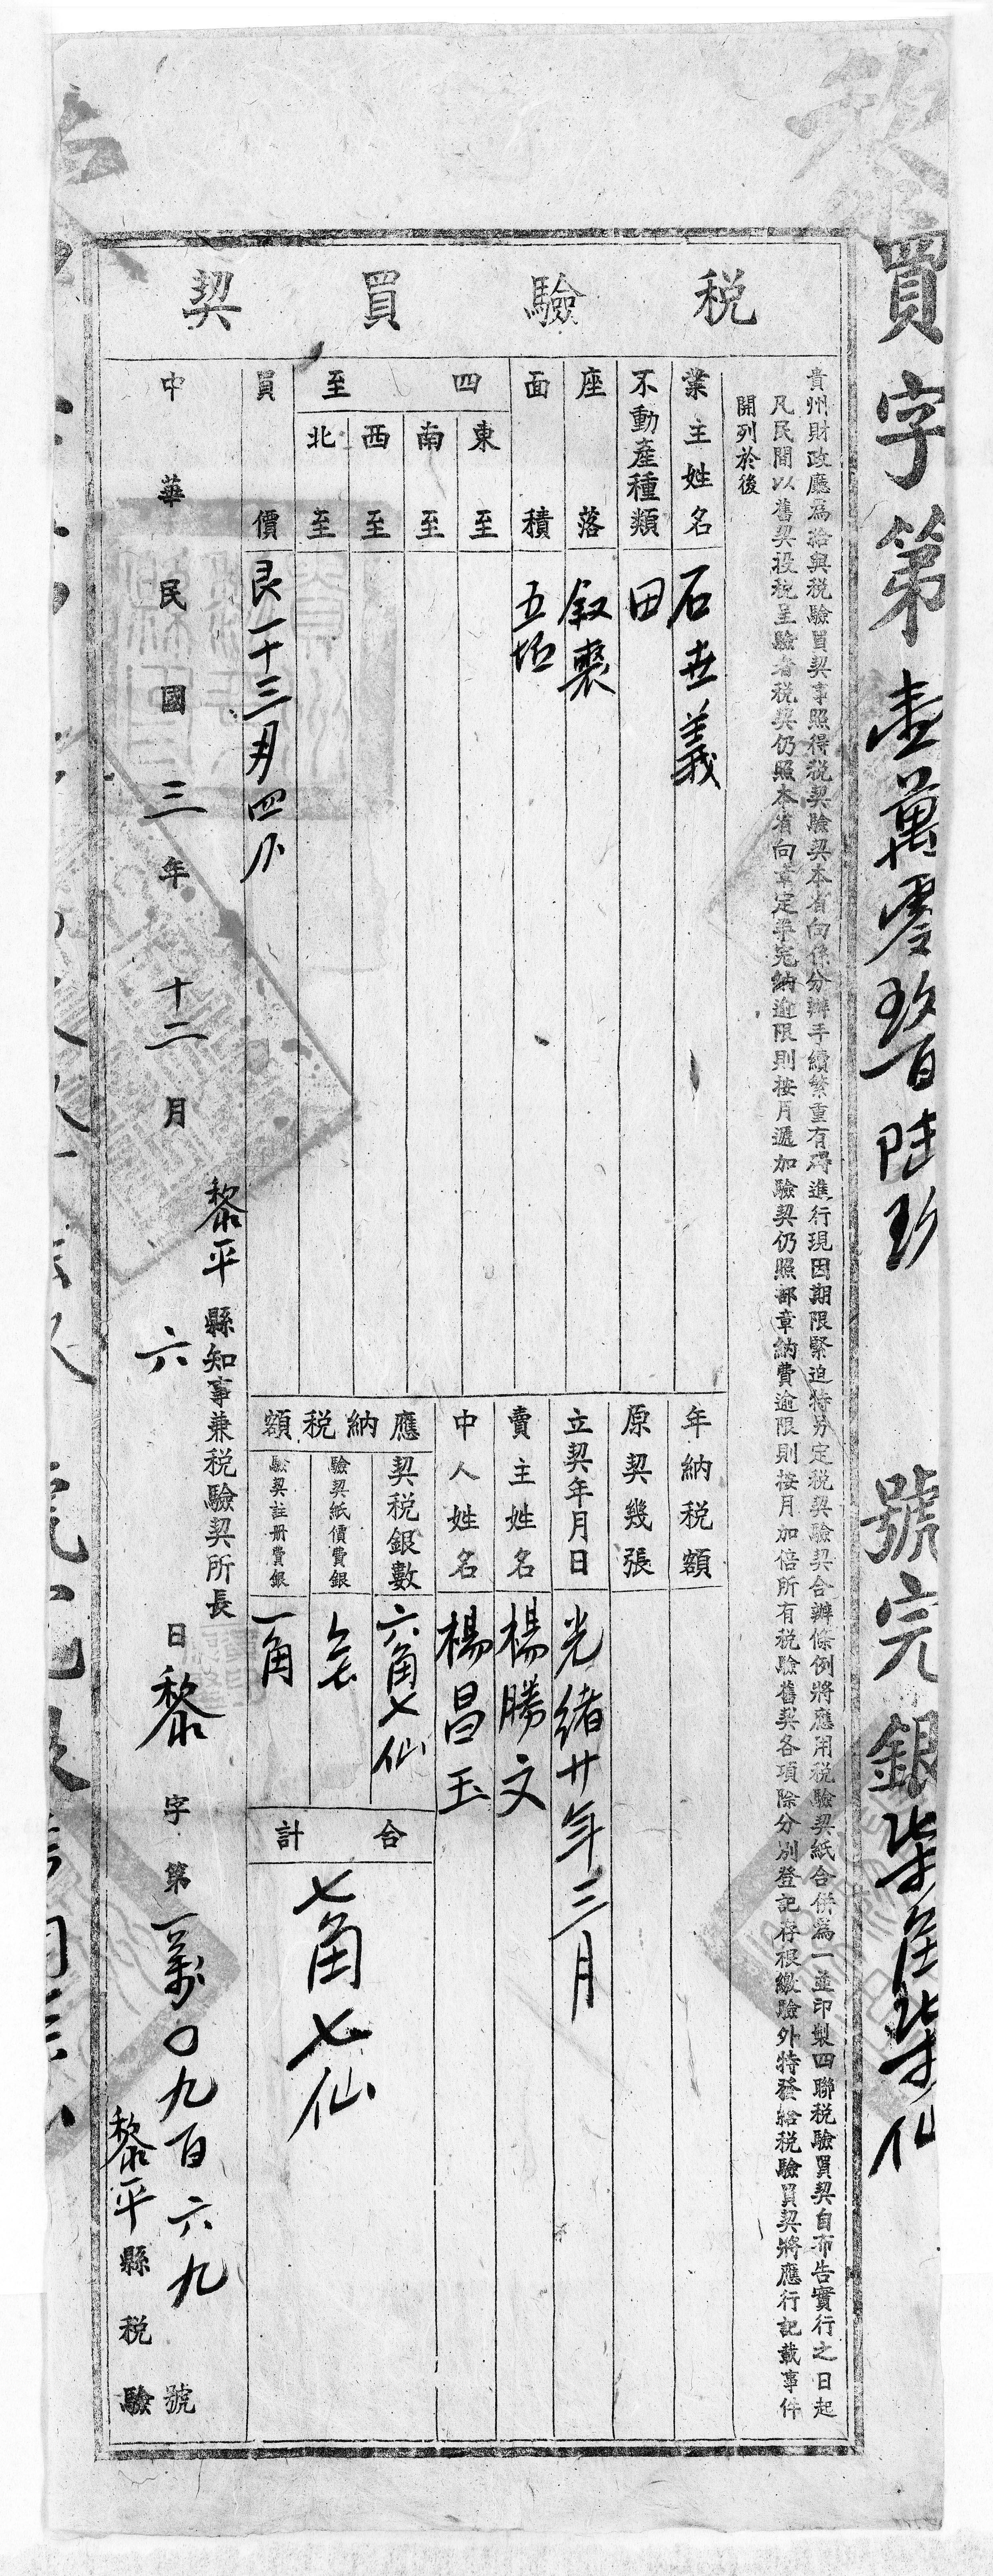 買字第壹萬零玖百陸玖號完銀柒角柒仙
稅驗買契
貴州財政廳為給與稅驗買契事照得稅契驗契本省向係分辦手續繁重有碍進行現因期限緊迫特另定稅契驗契合辦條例將應用稅驗契紙合併為一並印製四聯稅驗買契自布告實行之日起
凡民間以舊契投稅呈驗者稅契仍照本省向章定率完納逾限則按月遞加驗契仍照部章納費逾限則按月加倍所有稅驗舊契各項除分別登記存根繳驗外特發給稅驗買契將應行記載事件
開列於後
業主姓名 石世義
不動產種類 田
座落 叙裏
面積 五坵
四至
東至
南至
西至
北至
買價 艮一十三月四卜
年納稅額
原契幾張
立契年月日 光緒廿年三月
賣主姓名 楊勝文
中人姓名 楊昌玉
應納稅額
契稅銀數 六角七仙
驗契紙價費銀
驗契註册費銀 一角
合計 七角七仙
黎平縣知事兼稅驗契所長
中華民國三年十二月六日黎字第一萬〇九百六九號
黎平縣稅驗